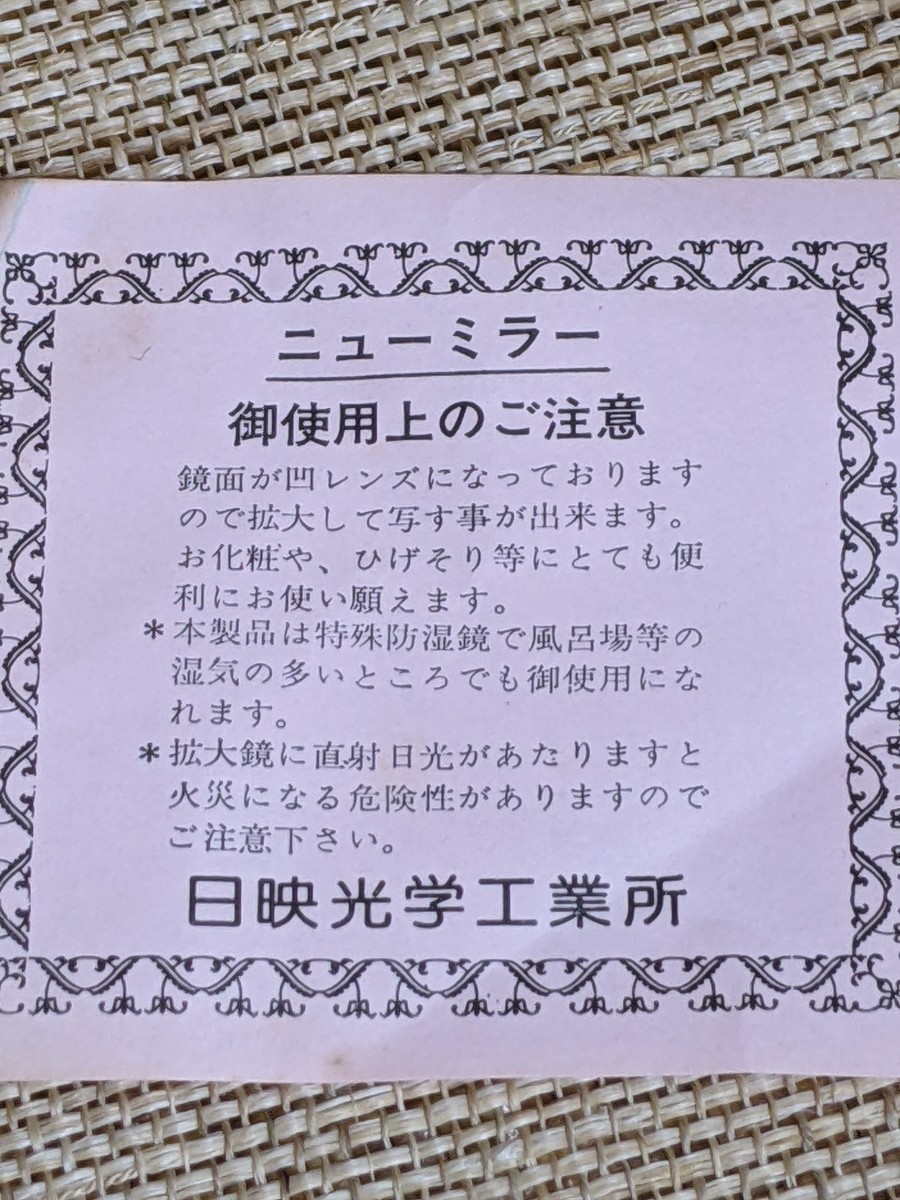 ニューミラー
御使用上のご注意
鏡面が凹レンズになっております
ので拡大して写す事が出来ます。
お化粧や、ひげそり等にとても便
利にお使い願えます。
*本製品は特殊防湿鏡で風呂場等の
湿気の多いところでも御使用にな
れます。
*拡大鏡に直射日光があたりますと
火災になる危険性がありますので
ご注意下さい。
日映光学工業所